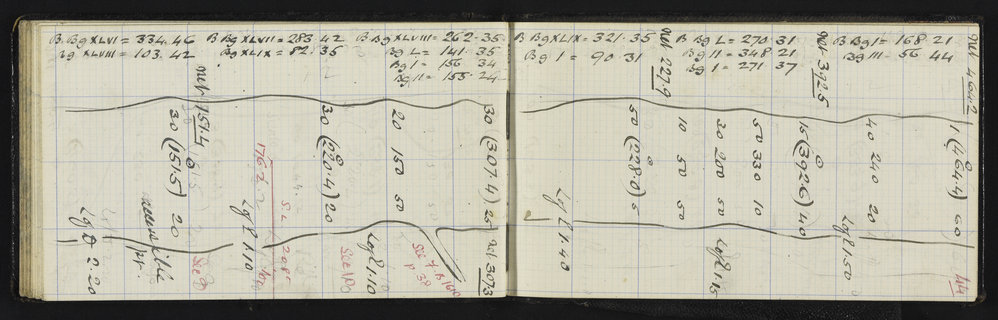 B. Bg XLVI = 334.46 B Bg XLVII = 283 42 B Bg XLVIII = 262.35
Bg XLVIII = 103.42 Bg XLIX = 82.35 Bg L = 141.35
Bg I = 156 34
Bg II = 155.24
net 151.4
30 (151.5) 20
30 (220.4) 20
20 150 50
30 (307.4) 25
net 307.3
1762
Lgf 2.20
Lgf 1.10
Lgf 1.10
See
See
See F. B
p 38
B BgXLIX = 321.35 B Bg L = 270 31 B Bg I = 168.21
Bg I = 90.31 Bg II = 348 21 Bg III = 56 44
Bg I = 271 37
net 227.9
net 392.5
net 464.2
50 (228.0) 5
10 50 50
30 200 50
50 330 10
15 (392.6) 40
40 240 20
1 (464.4) 60
Lgf 1.40
Lgf 1.15
Lgf 1.50
44